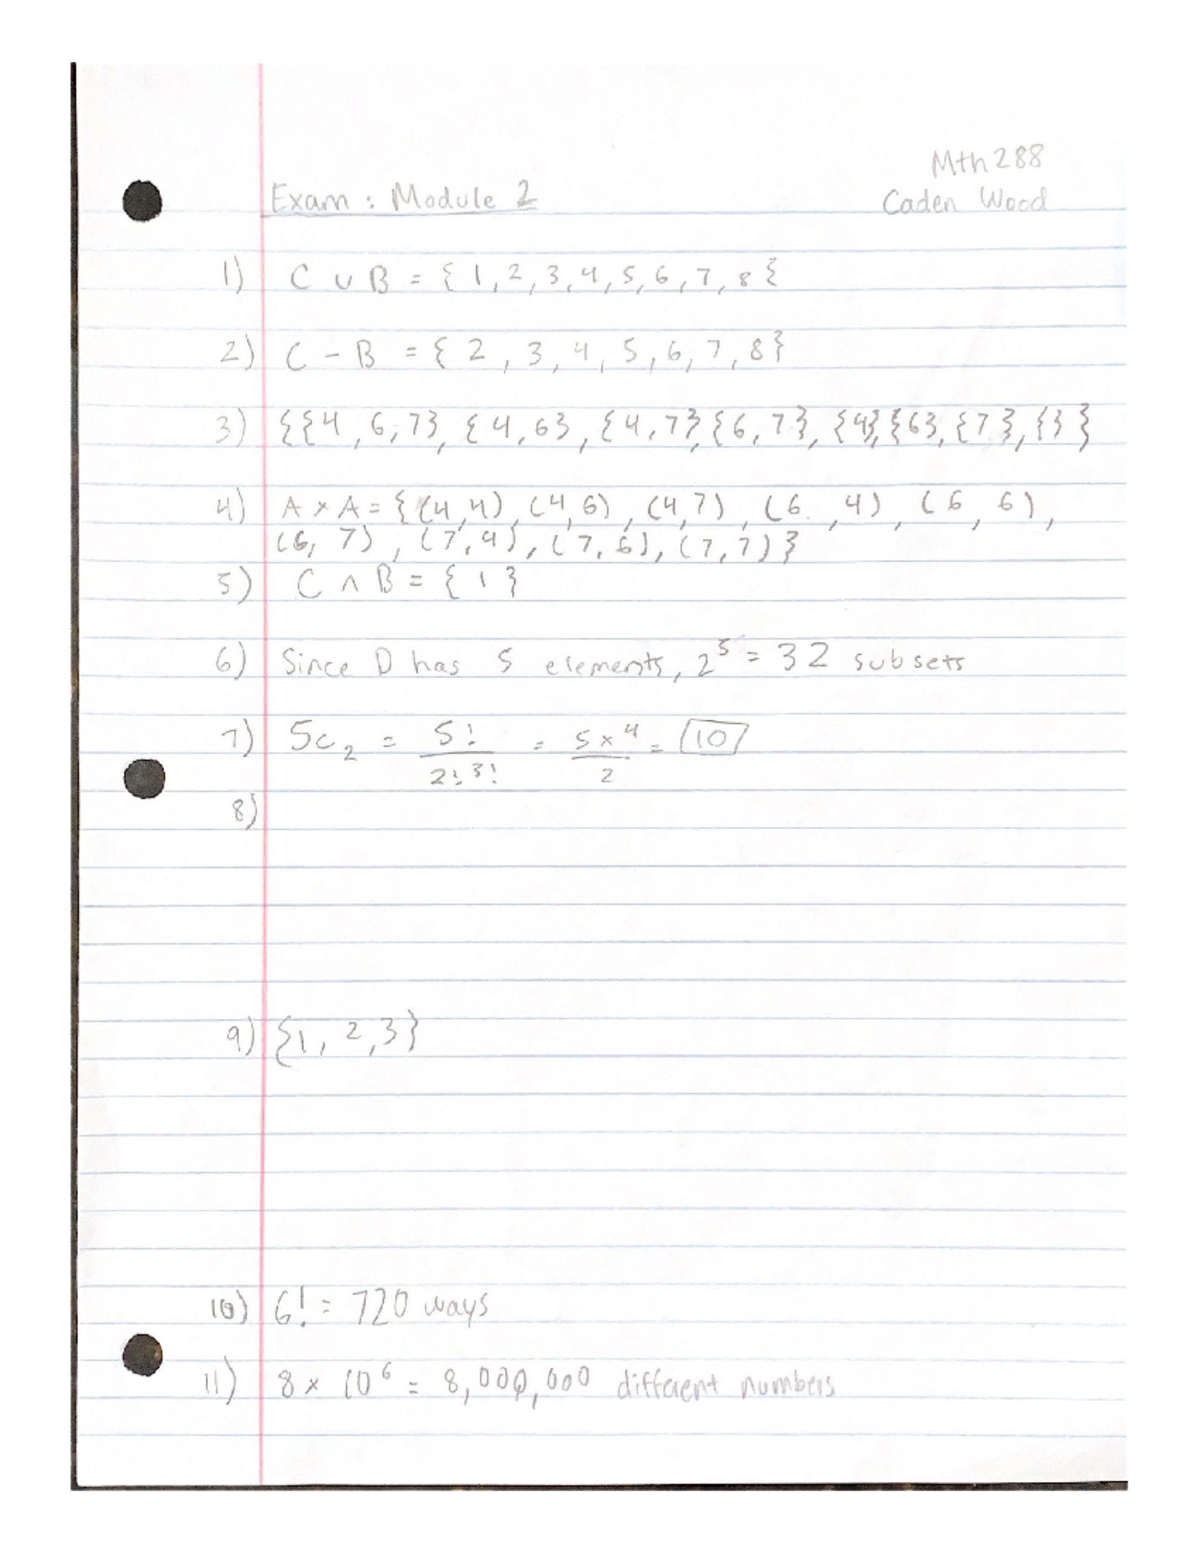 Mth 288
Exam : Module 2
Caden Wood
1) C ∪ B = { 1, 2, 3, 4, 5, 6, 7, 8 {
2) C - B = { 2, 3, 4, 5, 6, 7, 8 }
3) {{4, 6, 7}, {4, 6}, {4, 7}, {6, 7}, {4}, {6}, {7}, {} }
4) A × A = { (4,4), (4,6), (4,7), (6, 4), (6, 6),
(6, 7), (7,4), (7,6), (7,7) }
5) C ∩ B = { 1 }
6) Since D has 5 elements, 2⁵ = 32 subsets
7) 5C₂ = 5!/2!3! = 5×4/2 = 10
8)
9) {1, 2, 3}
10) 6! = 720 ways
11) 8 × 10⁶ = 8,000,000 different numbers